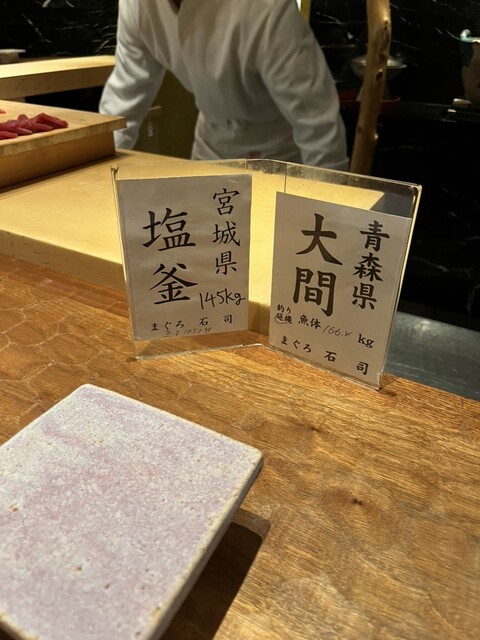 宮城県
塩釜
145kg
まぐろ 石 司
青森県
大間
釣り
延縄
魚体 166. kg
まぐろ 石 司